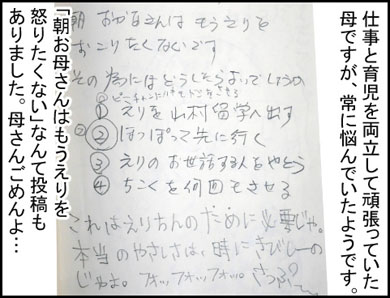 仕事と育児を両立して頑張っていた
母ですが、常に悩んでいたようです。
朝 お母さんは もう えりを
おこりたくないです
その為にはどうしたらよいでしょうか
① えりを山村留学へ出す
② ほっぽって先に行く
③ えりのお世話する人をやとう
④ ちこくを何回もさせる
これはえりちんのために必要じゃ。
本当のやさしさは、時にきびしーの
じゃよ。フォッフォッフォッ。
「朝お母さんはもうえりを
怒りたくない」なんて投稿も
ありました。母さんごめんよ…